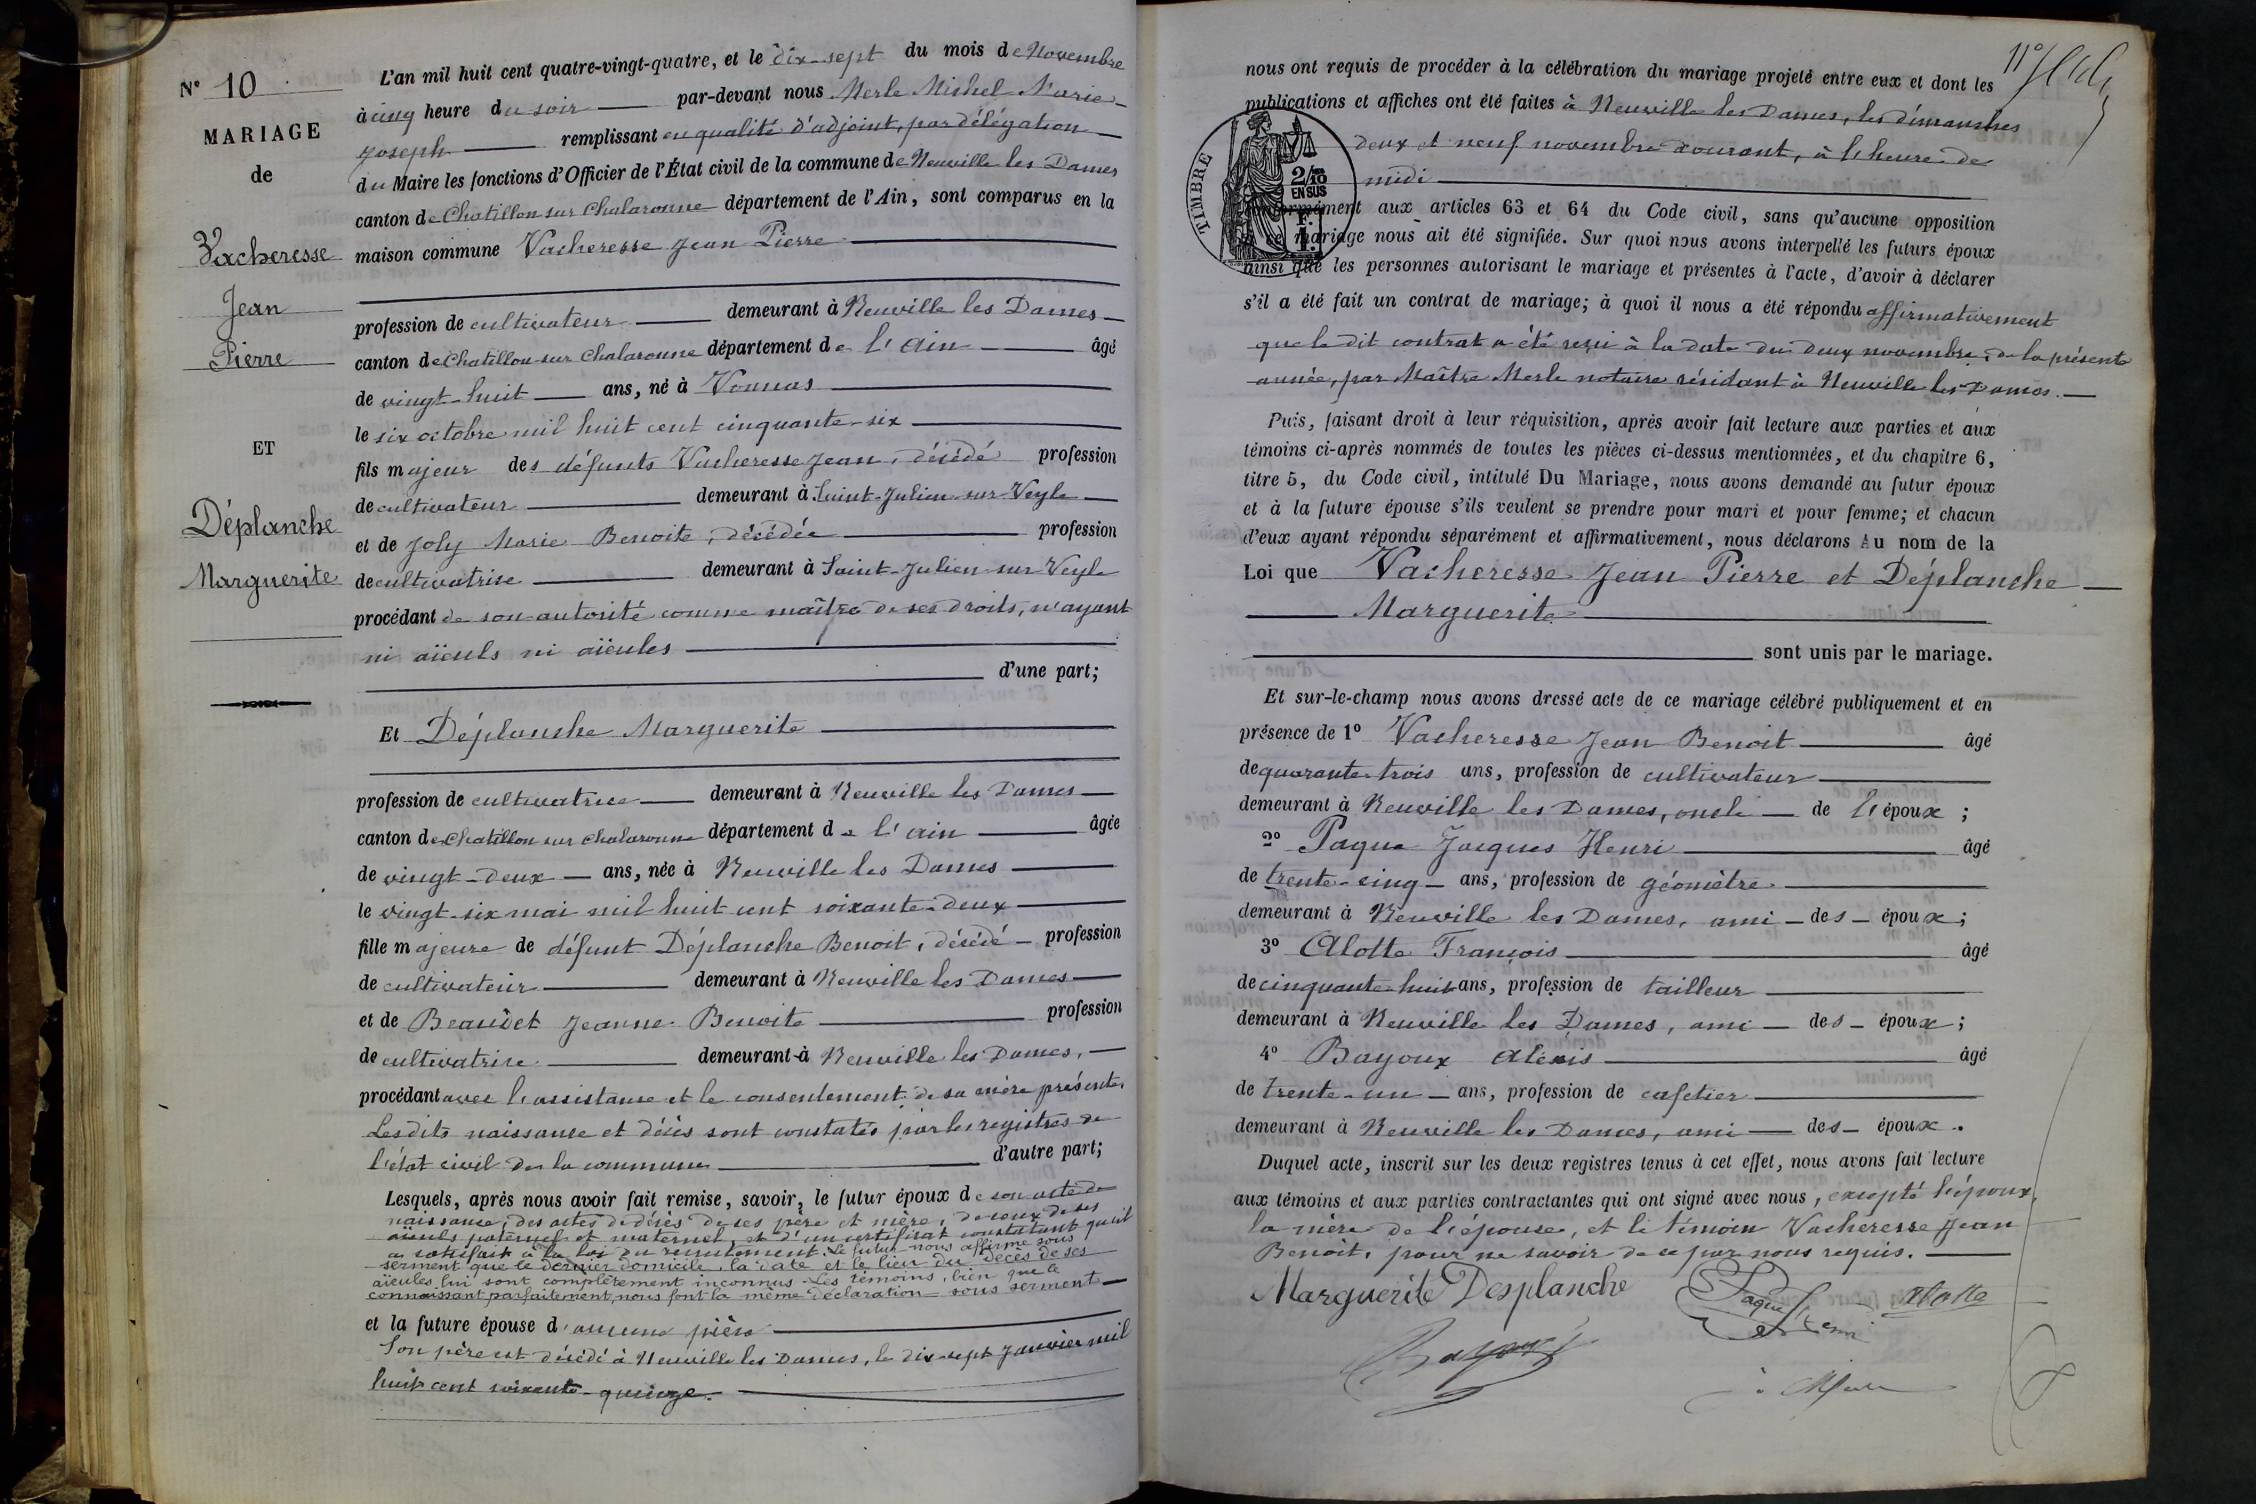 N° 10
MARIAGE
de
Vacheresse
Jean
Pierre
ET
Déplanche
Marguerite
L'an mil huit cent quatre-vingt-quatre, et le dix-sept du mois de Novembre
à cinq heure du soir par-devant nous Merle Michel Marie
Joseph remplissant en qualité d'adjoint, par délégation
du Maire les fonctions d'Officier de l'État civil de la commune de Neuville les Dames
canton de Chatillon sur Chalaronne département de l'Ain, sont comparus en la
maison commune Vacheresse Jean Pierre
profession de cultivateur demeurant à Neuville les Dames
canton de Chatillon sur Chalaronne département de l'Ain âgé
de vingt-huit ans, né à Vonnas
le six octobre mil huit cent cinquante-six
fils majeur des défunts Vacheresse Jean, décédé profession
de cultivateur demeurant à Saint-Julien-sur-Veyle
et de Joly Marie Benoite, décédée profession
de cultivatrice demeurant à Saint-Julien sur Veyle
procédant de son autorité comme maître de ses droits, n'ayant
ni aïeuls ni aïeules
d'une part;
Et Déplanche Marguerite
profession de cultivatrice demeurant à Neuville les Dames
canton de Chatillon sur Chalaronne département de l'ain âgée
de vingt-deux ans, née à Neuville les Dames
le vingt-six mai mil huit cent soixante-deux
fille majeure de défunt Déplanche Benoit, décédé profession
de cultivateur demeurant à Neuville les Dames
et de Beaudet Jeanne Benoite profession
de cultivatrice demeurant à Neuville les Dames,
procédant avec l'assistance et le consentement de sa mère présente.
Lesdits naissance et décès sont constatés par les registres de
l'état civil de la commune d'autre part;
Lesquels, après nous avoir fait remise, savoir, le futur époux de son acte de
naissance, des actes de décès de ses père et mère, de ceux de ses
aïeuls paternel et maternel, et d'un certificat constatant qu'il
a satisfait à la loi du recrutement. Le futur nous affirme sous
serment que le dernier domicile, la date et le lieu du décès de ses
aïeules lui sont complètement inconnus. Les témoins, bien que le
connaissant parfaitement, nous font la même déclaration sous serment
et la future épouse d'aucune pièce
Son père est décédé à Neuville les Dames, le dix-sept Janvier mil
huit cent soixante-quinze.
nous ont requis de procéder à la célébration du mariage projeté entre eux et dont les
publications et affiches ont été faites à Neuville les Dames, les dimanches
deux et neuf novembre courant, à l'heure de
midi
TIMBRE
2/10
EN SUS
conformément aux articles 63 et 64 du Code civil, sans qu'aucune opposition
à ce mariage nous ait été signifiée. Sur quoi nous avons interpellé les futurs époux
ainsi que les personnes autorisant le mariage et présentes à l'acte, d'avoir à déclarer
s'il a été fait un contrat de mariage; à quoi il nous a été répondu affirmativement
que le dit contrat a été reçu à la date du deux novembre de la présente
année, par Maître Merle notaire résidant à Neuville les Dames.
Puis, faisant droit à leur réquisition, après avoir fait lecture aux parties et aux
témoins ci-après nommés de toutes les pièces ci-dessus mentionnées, et du chapitre 6,
titre 5, du Code civil, intitulé Du Mariage, nous avons demandé au futur époux
et à la future épouse s'ils veulent se prendre pour mari et pour femme; et chacun
d'eux ayant répondu séparément et affirmativement, nous déclarons Au nom de la
Loi que Vacheresse Jean Pierre et Déplanche
Marguerite
sont unis par le mariage.
Et sur-le-champ nous avons dressé acte de ce mariage célébré publiquement et en
présence de 1° Vacheresse Jean Benoit âgé
de quarante-trois ans, profession de cultivateur
demeurant à Neuville les Dames, oncle de l'époux;
2° Paque Jacques Henri âgé
de trente-cinq ans, profession de géomètre
demeurant à Neuville les Dames, ami des époux;
3° Alotte François âgé
de cinquante-huit ans, profession de tailleur
demeurant à Neuville les Dames, ami des époux;
4° Bayoux Alexis âgé
de trente-un ans, profession de cafetier
demeurant à Neuville les Dames, ami des époux.
Duquel acte, inscrit sur les deux registres tenus à cet effet, nous avons fait lecture
aux témoins et aux parties contractantes qui ont signé avec nous, excepté l'époux,
la mère de l'épouse, et le témoin Vacheresse Jean
Benoit, pour ne savoir de ce par nous requis.
Marguerite Desplanche Paque Henri Alotte
Bayoux Merle